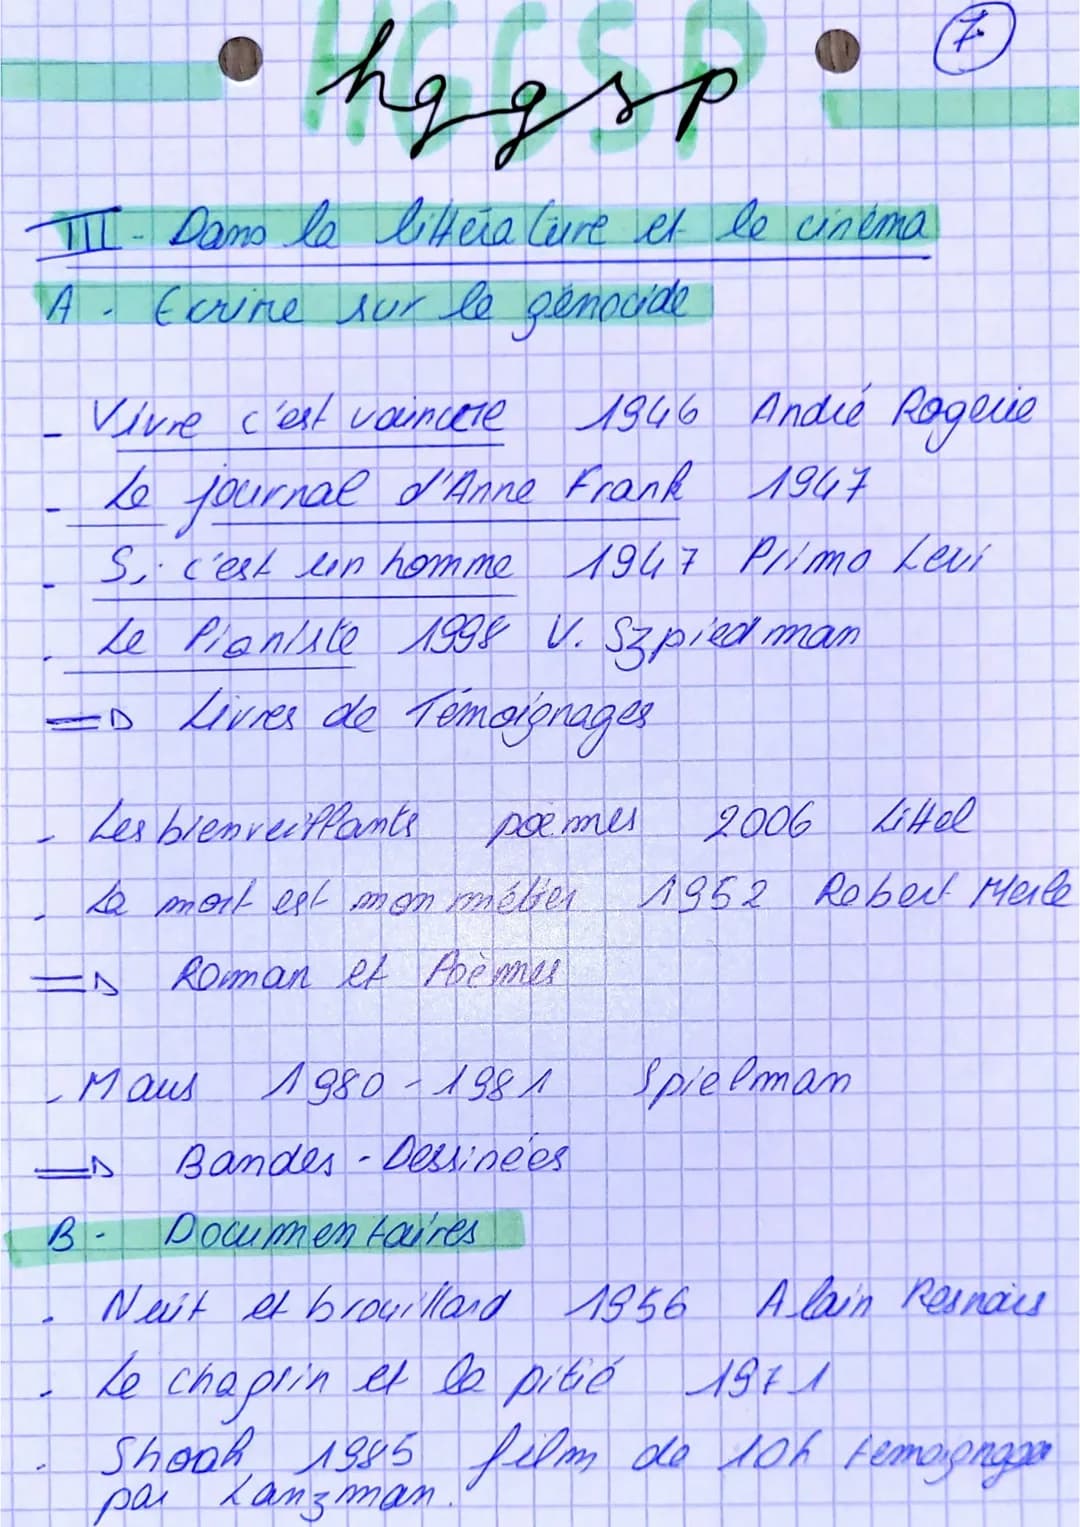 HGGSP
hggsp
7
III - Dans la littérature et le cinéma
A - Ecrire sur le génocide
- Vivre c'est vaincre 1946 André Rogerie
- Le journal d'Anne Frank 1947
- Si c'est un homme 1947 Primo Levi
- Le Pianiste 1998 V. Szpiedman
=> Livres de Témoignages
- Les bienveillants poèmes 2006 Littel
- La mort est mon métier 1952 Robert Merle
=> Roman et Poèmes
- Maus 1980 - 1981 Spielman
=> Bandes - Dessinées
B - Documentaires
- Nuit et brouillard 1956 Alain Resnais
- Le chagrin et la pitié 1971
- Shoah 1985 film de 10h
par Lanzman.